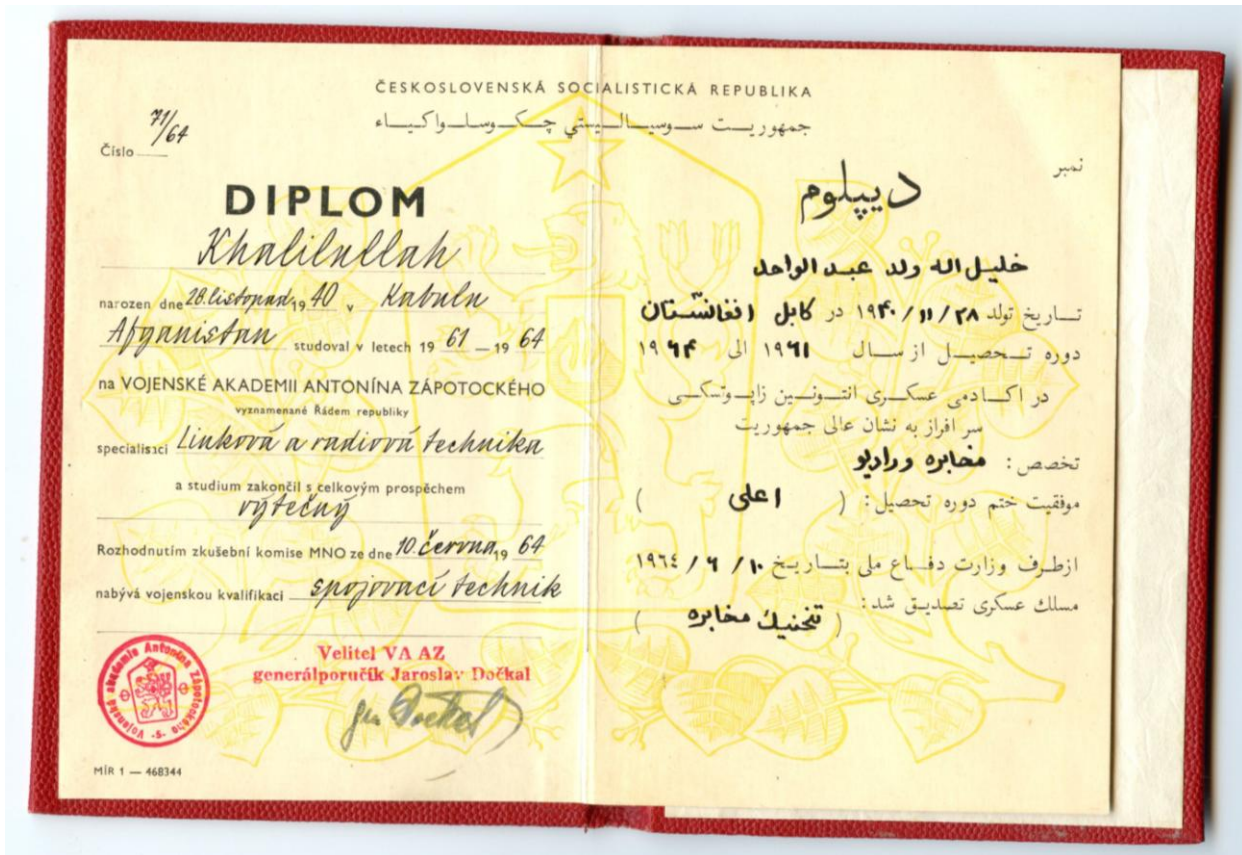 ČESKOSLOVENSKÁ SOCIALISTICKÁ REPUBLIKA
جمهوریت سوسیالیستی چکوسلواکیاء
Číslo 71/64
DIPLOM
Khalilullah
narozen dne 28. listopadu 1940 v Kabulu
Afganistan studoval v letech 1961 — 1964
na VOJENSKÉ AKADEMII ANTONÍNA ZÁPOTOCKÉHO
vyznamenané Řádem republiky
specialisaci Linková a radiová technika
a studium zakončil s celkovým prospěchem
výtečný
Rozhodnutím zkušební komise MNO ze dne 10. června 1964
nabývá vojenskou kvalifikaci spojovací technik
Velitel VA AZ
generálporučík Jaroslav Dočkal
Vojenská akademie Antonína Zápotockého -5-
MÍR 1 — 468344
نمبر
دیپلوم
خلیل الله ولد عبد الواحد
تاریخ تولد ۲۸ / ۱۱ / ۱۹۴۰ در کابل افغانستان
دوره تحصیل از سال ۱۹۶۱ الی ۱۹۶۴
در اکادمی عسکری انتونین زاپوتسکی
سر افراز به نشان عالی جمهوریت
تخصص : مخابره و رادیو
موفقیت ختم دوره تحصیل : ( اعلی )
ازطرف وزارت دفاع ملی بتاریخ ۱۰ / ۶ / ۱۹٦٤
مسلك عسکری تصدیق شد : ( تخنیك مخابره )